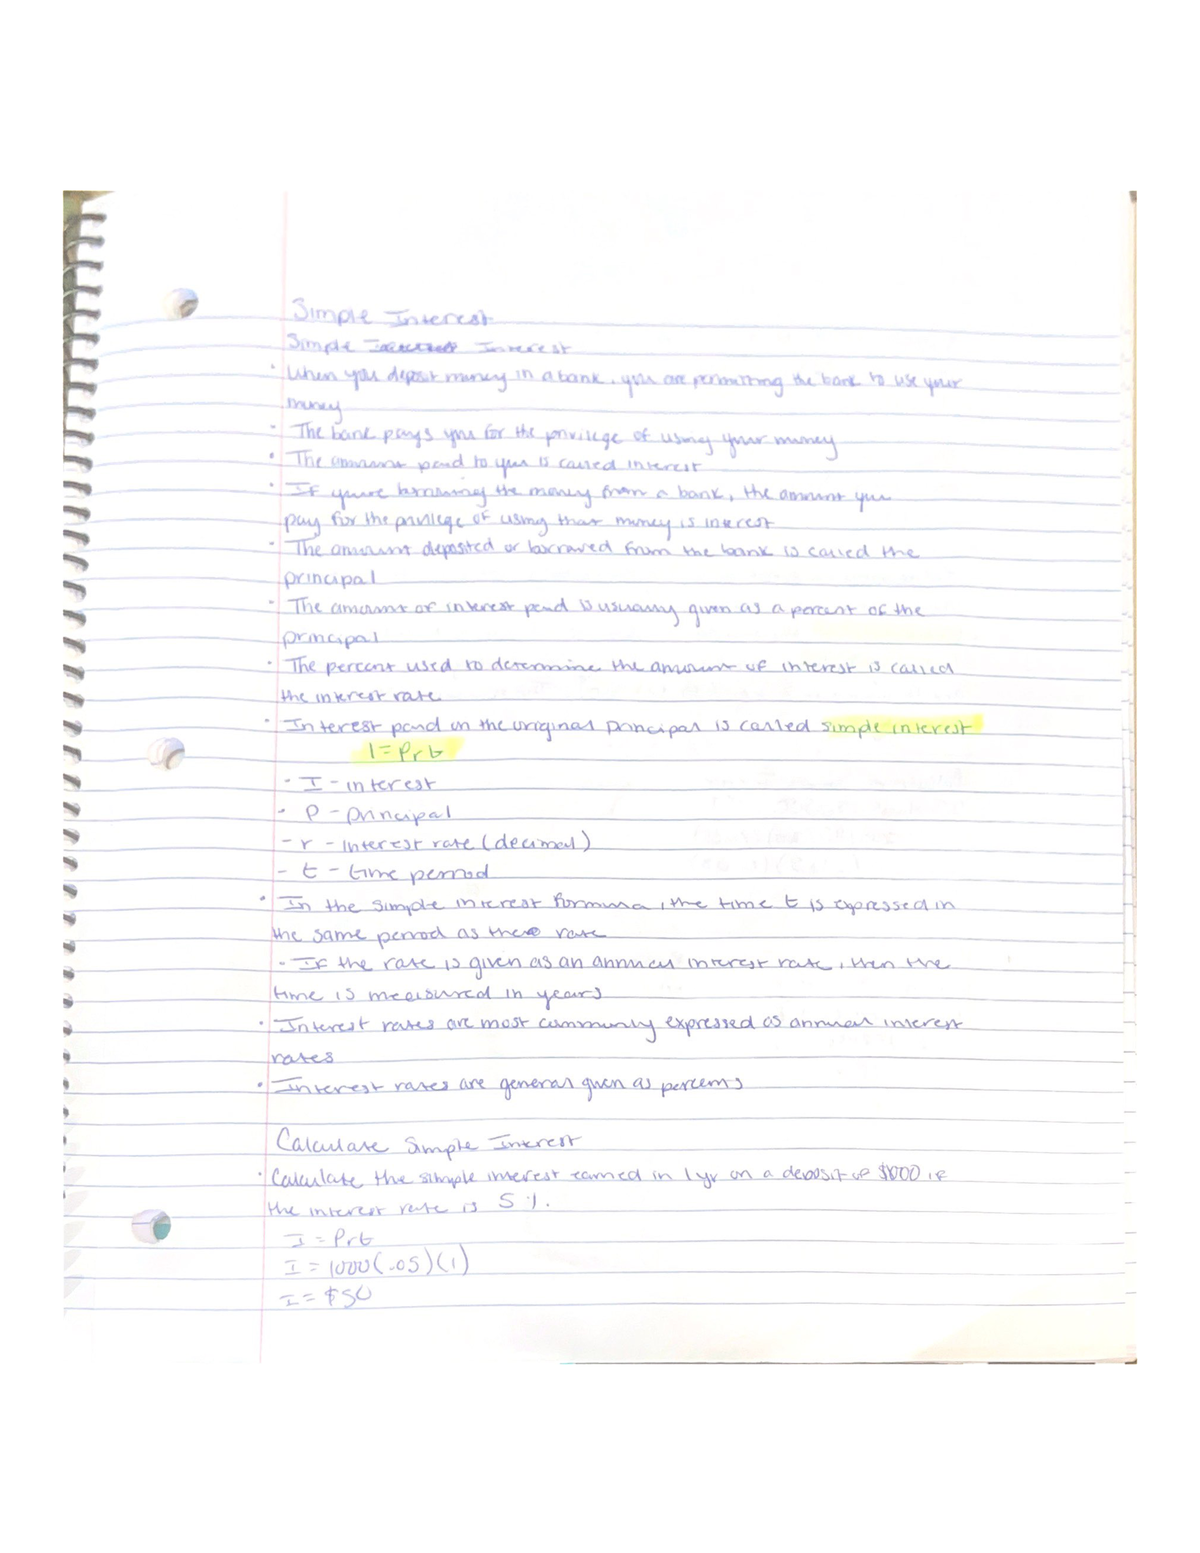 Simple Interest
Simple Interest
· When you deposit money in a bank, you are permitting the bank to use your
money
· The bank pays you for the privilege of using your money
· The amount paid to you is called interest
· If you're borrowing the money from a bank, the amount you
pay for the privilege of using that money is interest
· The amount deposited or borrowed from the bank is called the
principal
· The amount of interest paid is usually given as a percent of the
principal
· The percent used to determine the amount of interest is called
the interest rate
· Interest paid on the original principal is called simple interest
I=Prt
- I - interest
- P - principal
- r - interest rate (decimal)
- t - time period
· In the simple interest formula, the time t is expressed in
the same period as the rate
- If the rate is given as an annual interest rate, then the
time is measured in years
· Interest rates are most commonly expressed as annual interest
rates
· Interest rates are general given as percents
Calculate Simple Interest
· Calculate the simple interest earned in 1 yr on a deposit of $1000 if
the interest rate is 5%.
I = Prt
I = 1000(.05)(1)
I = $50